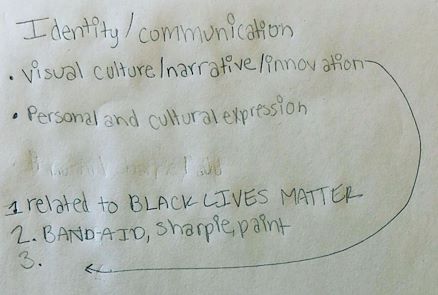 Identity/communication
• visual culture/narrative/innovation
• Personal and cultural expression
1 related to BLACK LIVES MATTER
2. BAND-AID, sharpie, paint
3.